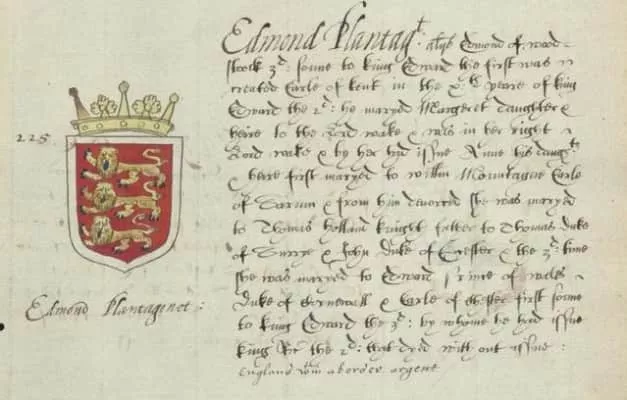 Edmond Plantagt. als Edmond of wood=
stock 3d: sonne to king Edward the first was
created Earle of kent in the x.th yeare of king
Edward the 2d: he maryed Margeret daughter &
heire to the Lord wake & was in her right
Lord wake & by her had issue Anne his daugt
& heire first maryed to willm Mountague Earle
of Sarum & from him devorced she was maryed
to Thomas holland knight father to Thomas duke
of Surrye & John duke of Excester & the 3d: time
she was maryed to Edward prince of wales
duke of Cornewall & Earle of Chester first sonne
to king Edward the 3d: by whome he had issue
king Ric the 2d: that dyed without issue:
England wthin a border argent
225
Edmond Plantaginet: